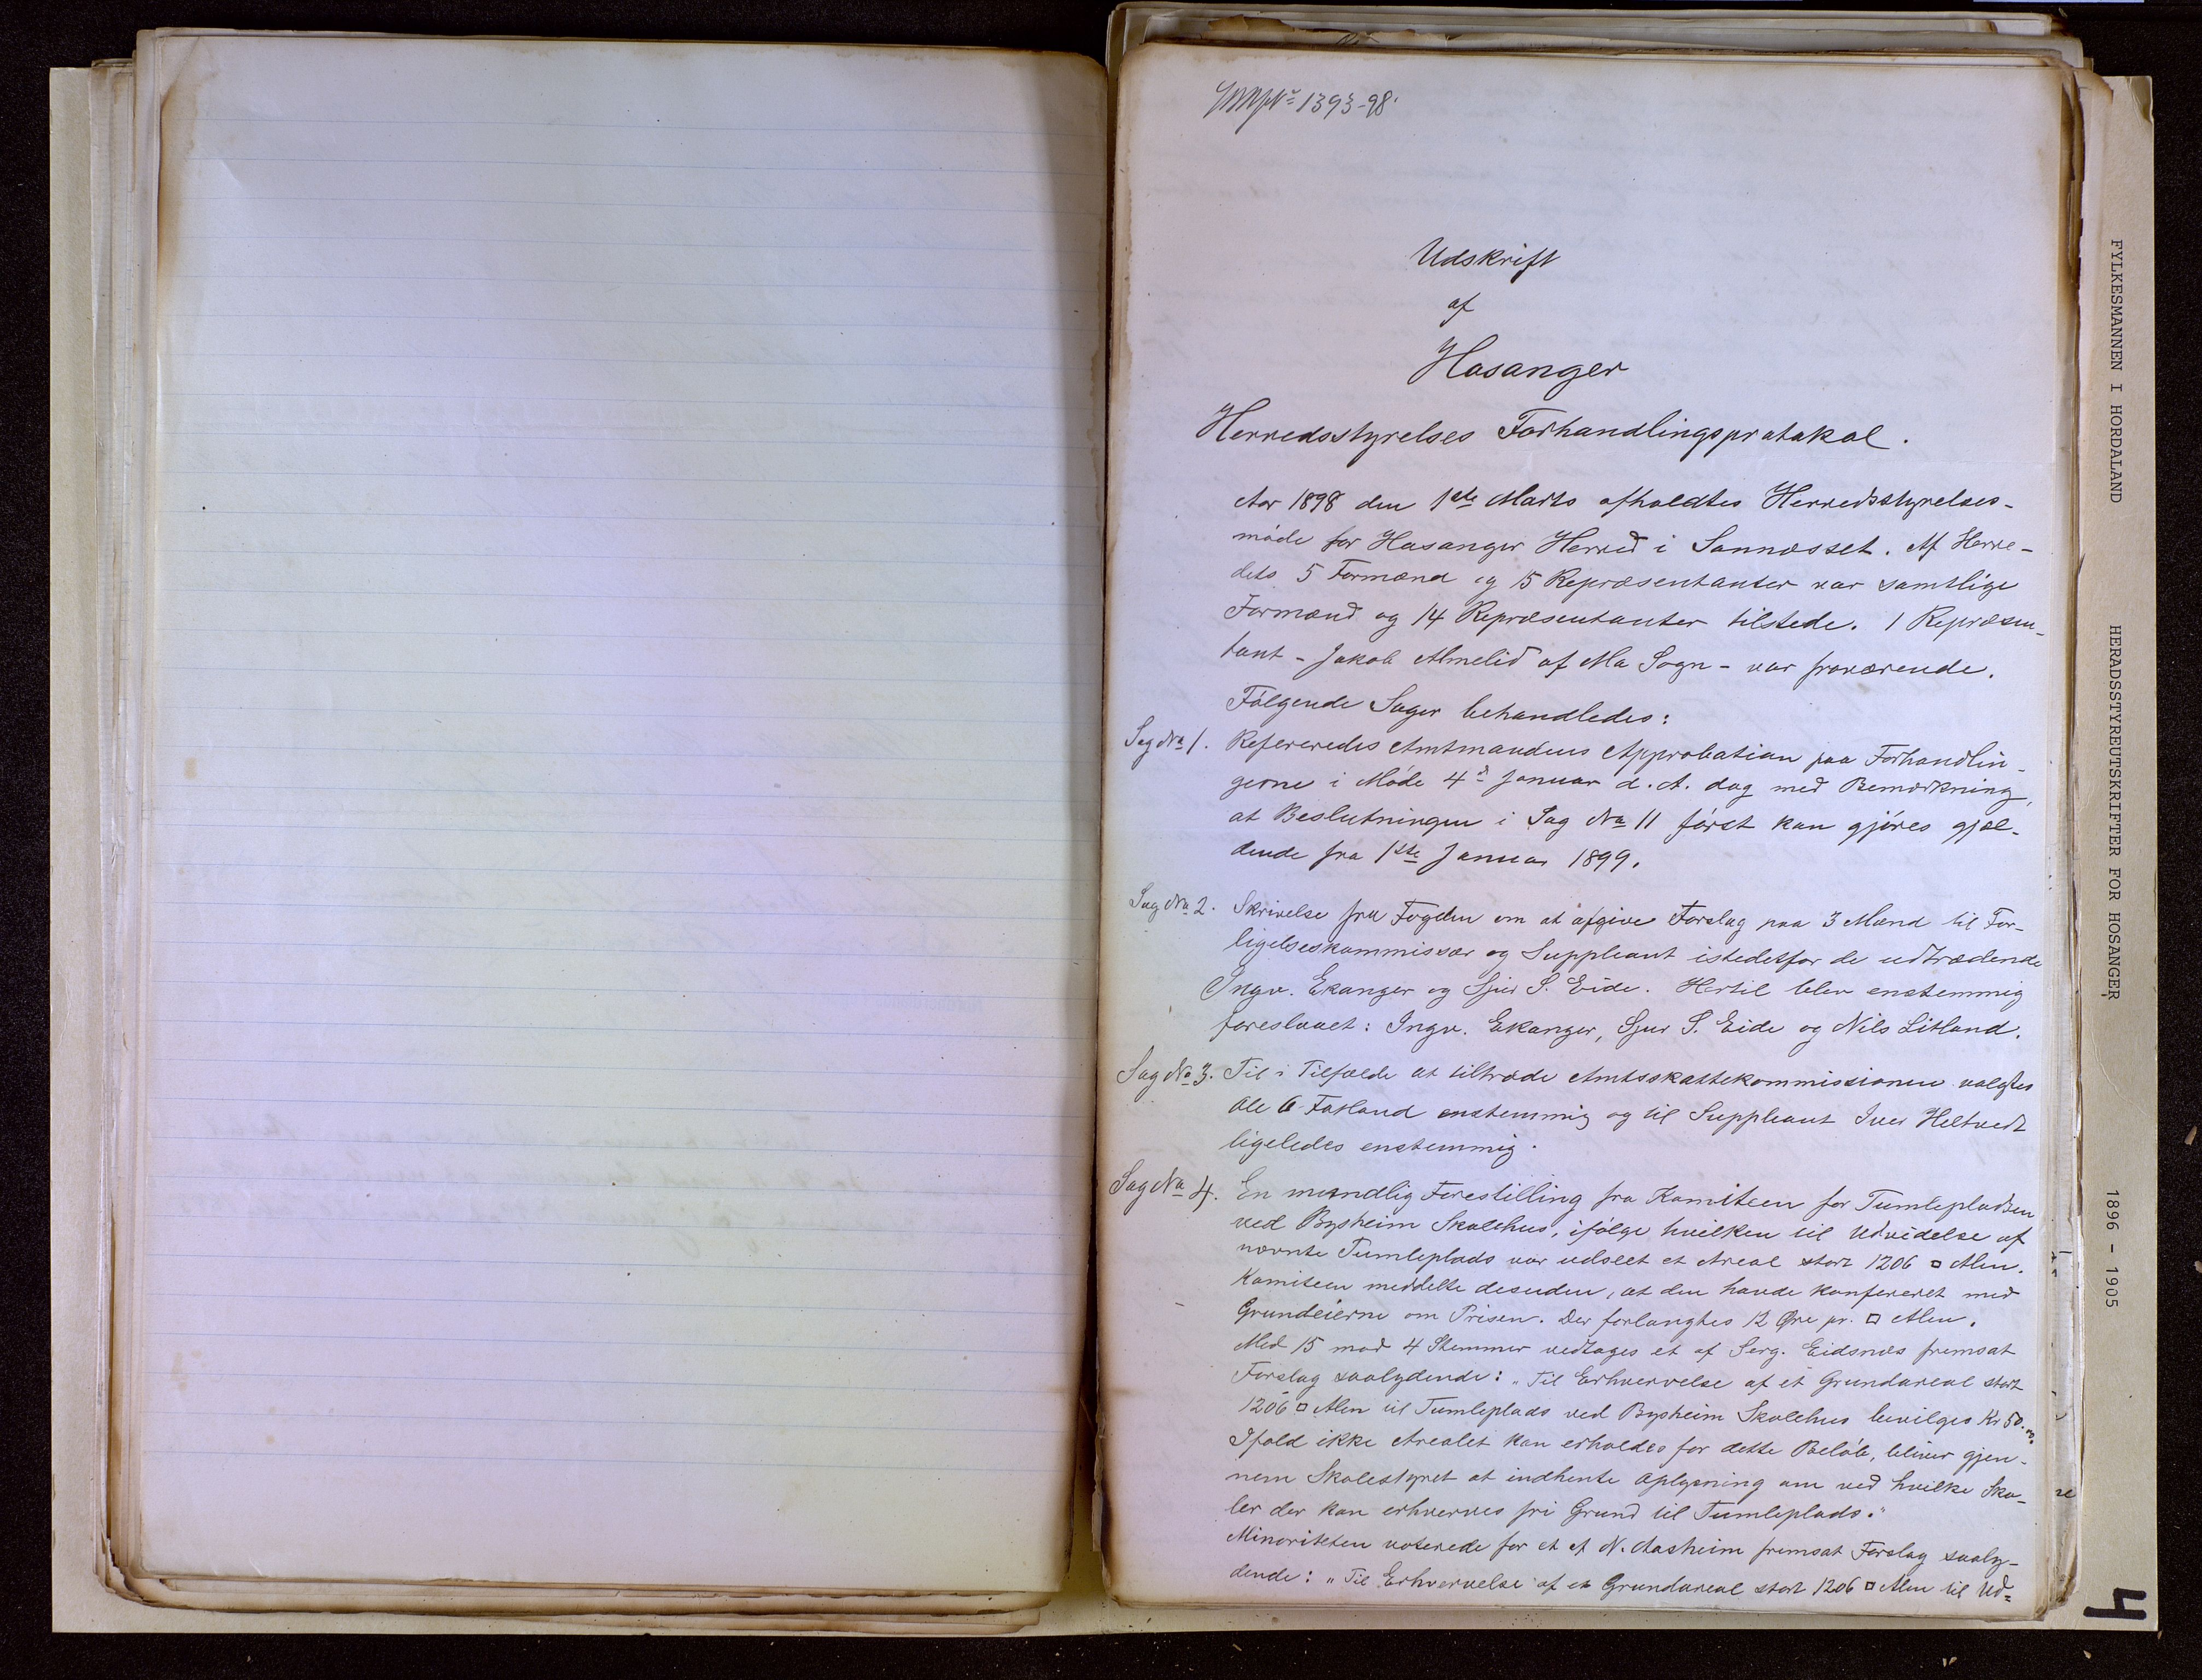 No 1393-98.
Udskrift
af
Hosanger
Herredsstyrelses Forhandlingsprotokol.
Aar 1898 den 1ste Marts afholdtes Herredsstyrelses-
møde for Hosanger Herred i Sannæsset. Af Herre-
dets 5 Formænd og 15 Repræsentanter var samtlige
Formænd og 14 Repræsentanter tilstede. 1 Repræsen-
tant - Jakob Almelid af Mo Sogn - var fraværende.
Følgende Sager behandledes:
Sag No 1. Refereredes Amtmandens Approbation paa Forhandlin-
gerne i Møde 4de Januar d. A. dog med Bemærkning,
at Beslutningen i Sag No 11 først kan gjøres gjæl-
dende fra 1ste Januar 1899.
Sag No 2. Skrivelse fra Fogden om at afgive Forslag paa 3 Mænd til For-
ligelseskommissær og Suppleant istedetfor de udtrædende
Ingv. Ekanger og Sjur S. Eide. Hertil blev enstemmig
foreslaaet: Ingv. Ekanger, Sjur S. Eide og Nils Litland.
Sag No 3. Til i Tilfælde at tiltræde Amtsskattekommissionen valgtes
Ole O Fatland enstemmig og til Suppleant Iver Heltvedt
ligeledes enstemmig.
Sag No 4. En mundlig Forestilling fra Komiteen for Tumlepladsen
ved Bysheim Skolehus, ifølge hvilken til Udvidelse af
nævnte Tumleplads var udseet et Areal stort 1206 □ Alen.
Komiteen meddelte desuden, at den havde konfereret med
Grundeierne om Prisen. Der forlangtes 12 Øre pr. □ Alen.
Med 15 mod 4 Stemmer vedtages et af Serg. Eidsnes fremsat
Forslag saalydende: „Til Erhvervelse af et Grundareal stort
1206 □ Alen til Tumleplads ved Bysheim Skolehus bevilges Kr 50.00.
Ifald ikke Arealet kan erholdes for dette Beløb, bliver gjen-
nem Skolestyret at indhente Oplysning om ved hvilke Sko-
ler der kan erhverves fri Grund til Tumleplads."
Minoriteten voterede for et af N. Aasheim fremsat Forslag saaly-
dende: „Til Erhvervelse af et Grundareal stort 1206 □ Alen til Ud=
FYLKESMANNEN I HORDALAND HERADSSTYREUTSKRIFTER FOR HOSANGER 1896 - 1905
4